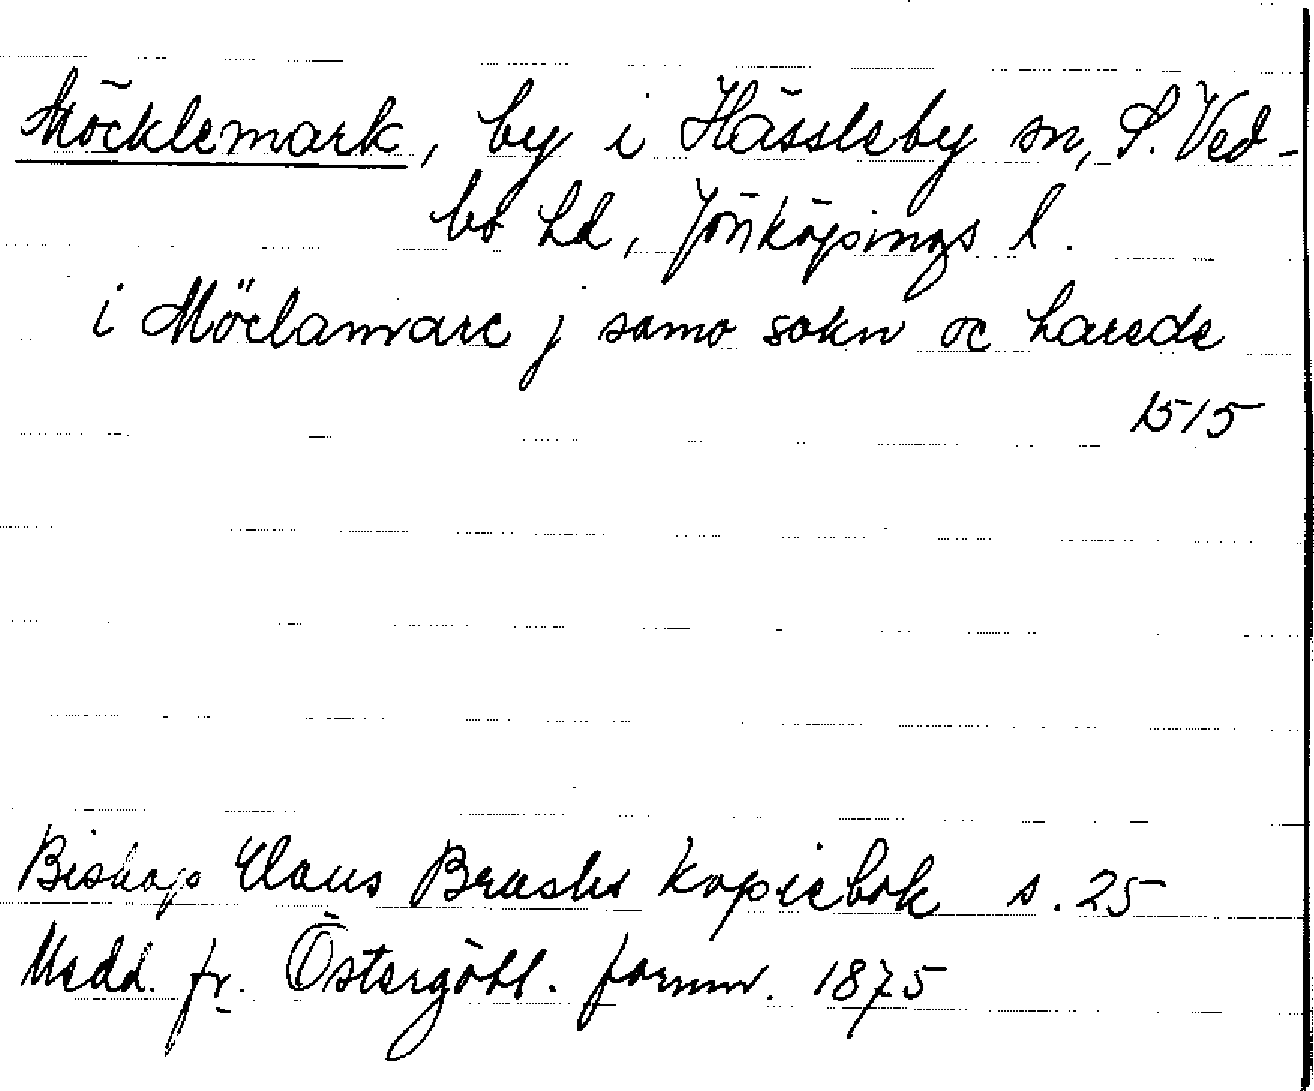 Möcklemark, by i Hässleby sn, S. Ved-
bo hd, Jönköpings l.
i Möclamarc j samo sokn oc harede
1515
Biskop Claus Brasks kopiebok s. 25
Medd. fr. Östergötl. fornm. 1875